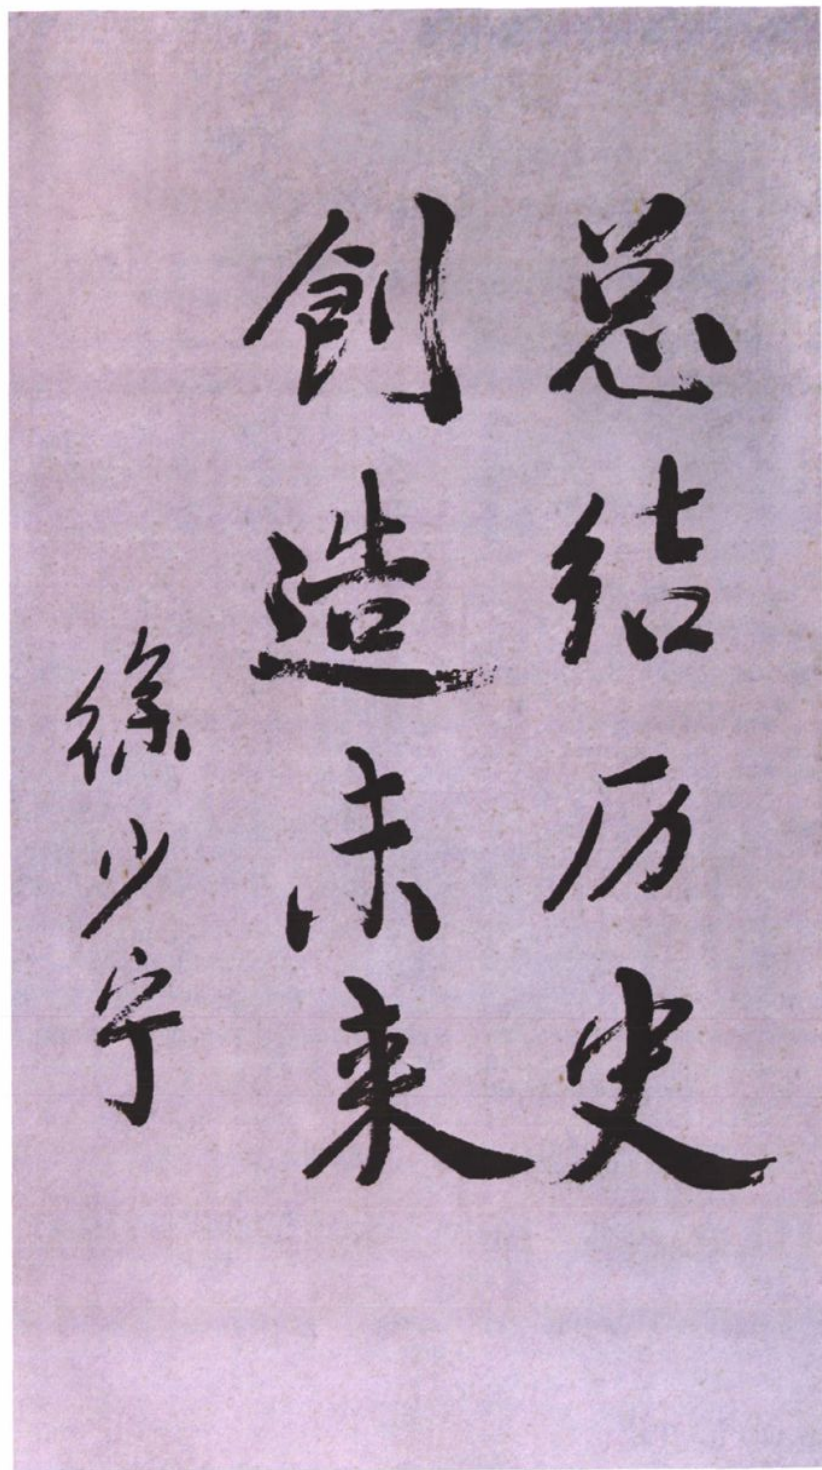 总结历史
創造未来
徐少宁